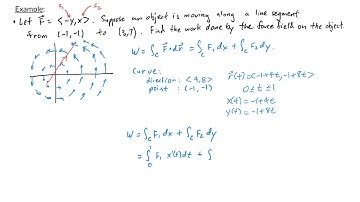 Example:
F₁ F₂
• Let F⃗ = <-y, x>. Suppose an object is moving along a line segment
from (-1,-1) to (3,7). Find the work done by the force field on the object.
W = ∫_C F⃗·dr⃗ = ∫_C F₁ dx + ∫_C F₂ dy.
Curve:
direction: <4,8>
point: (-1,-1)
r⃗(t) = <-1+4t, -1+8t>
0 ≤ t ≤ 1
x(t) = -1+4t
y(t) = -1+8t
W = ∫_C F₁ dx + ∫_C F₂ dy
= ∫₀¹ F₁ x'(t) dt + ∫